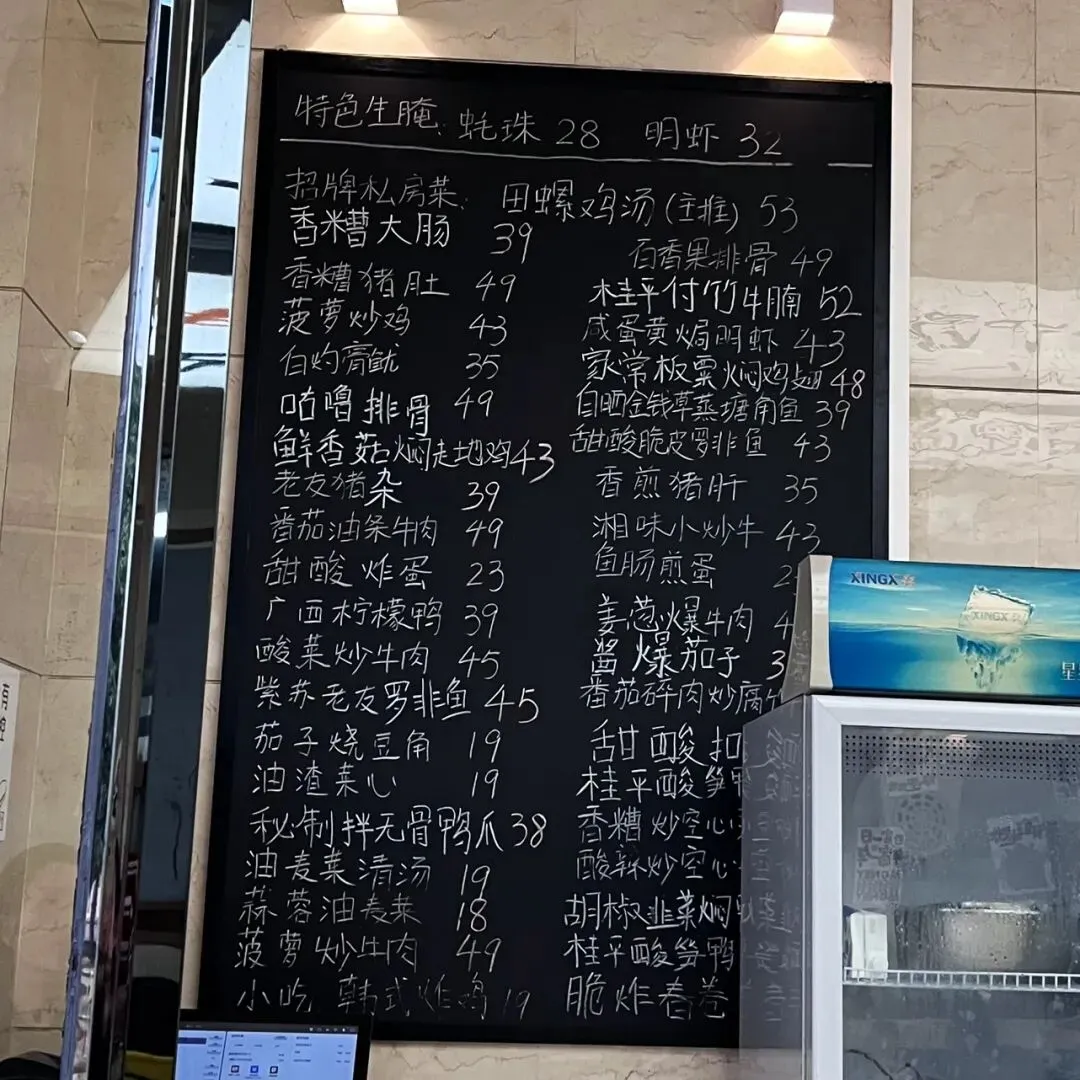 特色生腌: 蚝珠 28 明虾 32
招牌私房菜: 田螺鸡汤(主推) 53
香糟大肠 39
香糟猪肚 49
菠萝炒鸡 43
白灼膏鱿 35
咕噜排骨 49
鲜香菇焖走地鸡 43
老友猪杂 39
番茄油条牛肉 49
甜酸炸蛋 23
广西柠檬鸭 39
酸菜炒牛肉 45
紫苏老友罗非鱼 45
茄子烧豆角 19
油渣菜心 19
秘制拌无骨鸭爪 38
油麦菜清汤 19
蒜蓉油麦菜 18
菠萝炒牛肉 49
小吃 韩式炸鸡 19
百香果排骨 49
桂平付竹牛腩 52
咸蛋黄焗明虾 43
家常板栗焖鸡翅 48
自晒金钱草蒸塘角鱼 39
甜酸脆皮罗非鱼 43
香煎猪肝 35
湘味小炒牛 43
鱼肠煎蛋 2
姜葱爆牛肉 4
酱爆茄子 3
番茄碎肉炒腐竹
甜酸扣
桂平酸笋鸭
香糟炒空心
酸辣炒空心
胡椒韭菜焖
桂平酸笋鸭
脆炸春卷
XINGX
XINGX
星
有